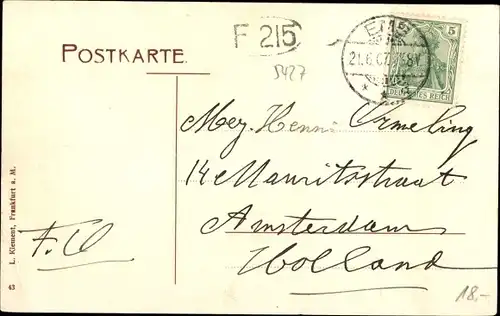 POSTKARTE.
F 215
5427
EMS
5
DEUTSCHES REICH
Mej. Henni Ormeling
14 Mauritsstraat
Amsterdam
Holland
F.O
L. Klement, Frankfurt a. M.
43
18,-